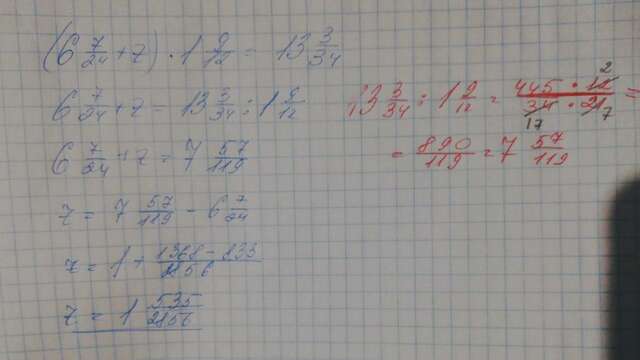 (6 7/24 + z) · 1 9/12 = 13 3/34
6 7/24 + z = 13 3/34 : 1 9/12
6 7/24 + z = 7 57/119
z = 7 57/119 - 6 7/24
z = 1 + (1368 - 833)/2856
z = 1 535/2856
13 3/34 : 1 9/12 = (445 · 12)/(34 · 21) =
2
17 7
= 890/119 = 7 57/119